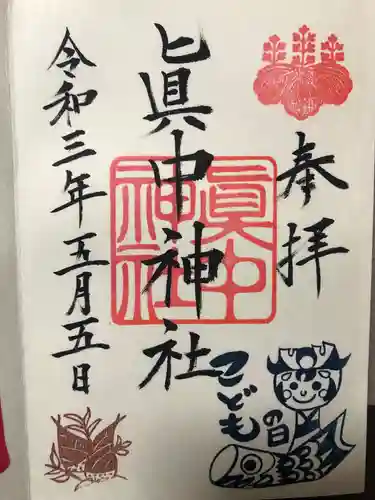 奉拝
眞中神社
眞中
神社
令和三年五月五日
こども
の日